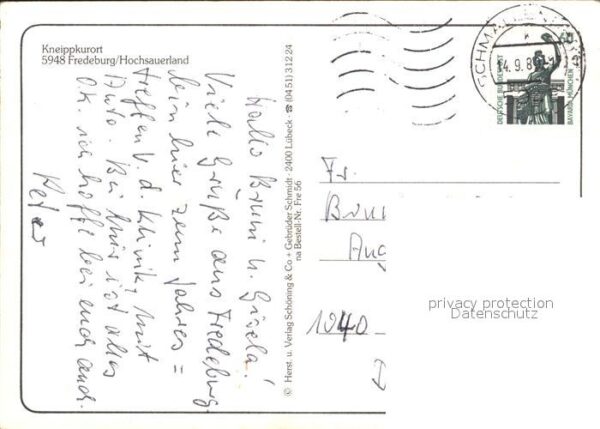 Kneippkurort
5948 Fredeburg/Hochsauerland
Hallo Bruni u. Gisela!
Viele Grüße aus Fredeburg.
Bin hier zum Jahres=
treffen v. d. Klinik, mit
Auto. Bei mir ist alles
o.k. ich hoffe bei euch auch.
Peter
© Herst. u. Verlag Schöning & Co + Gebrüder Schmidt · 2400 Lübeck · ☎ (04 51) 3 12 24
na Bestell-Nr. Fre 56
SCHMALLENBERG
14.9.8
60
DEUTSCHE BUNDESPOST
BAVARIA MÜNCHEN
Fr.
Bru
Au
1040
privacy protection
Datenschutz